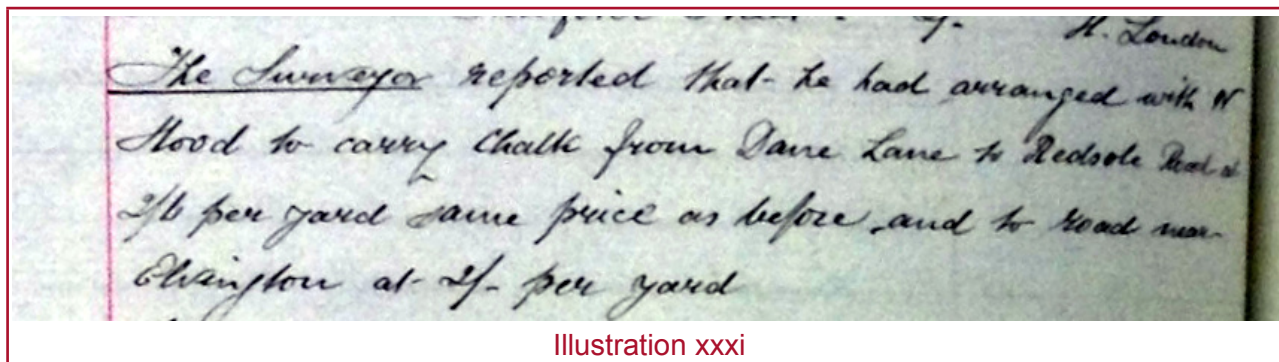 H. London
The Surveyor reported that he had arranged with W
Hood to carry Chalk from Dane Lane to Redsole Road at
2/6 per yard same price as before and to road near
Elvington at 2/- per yard
Illustration xxxi